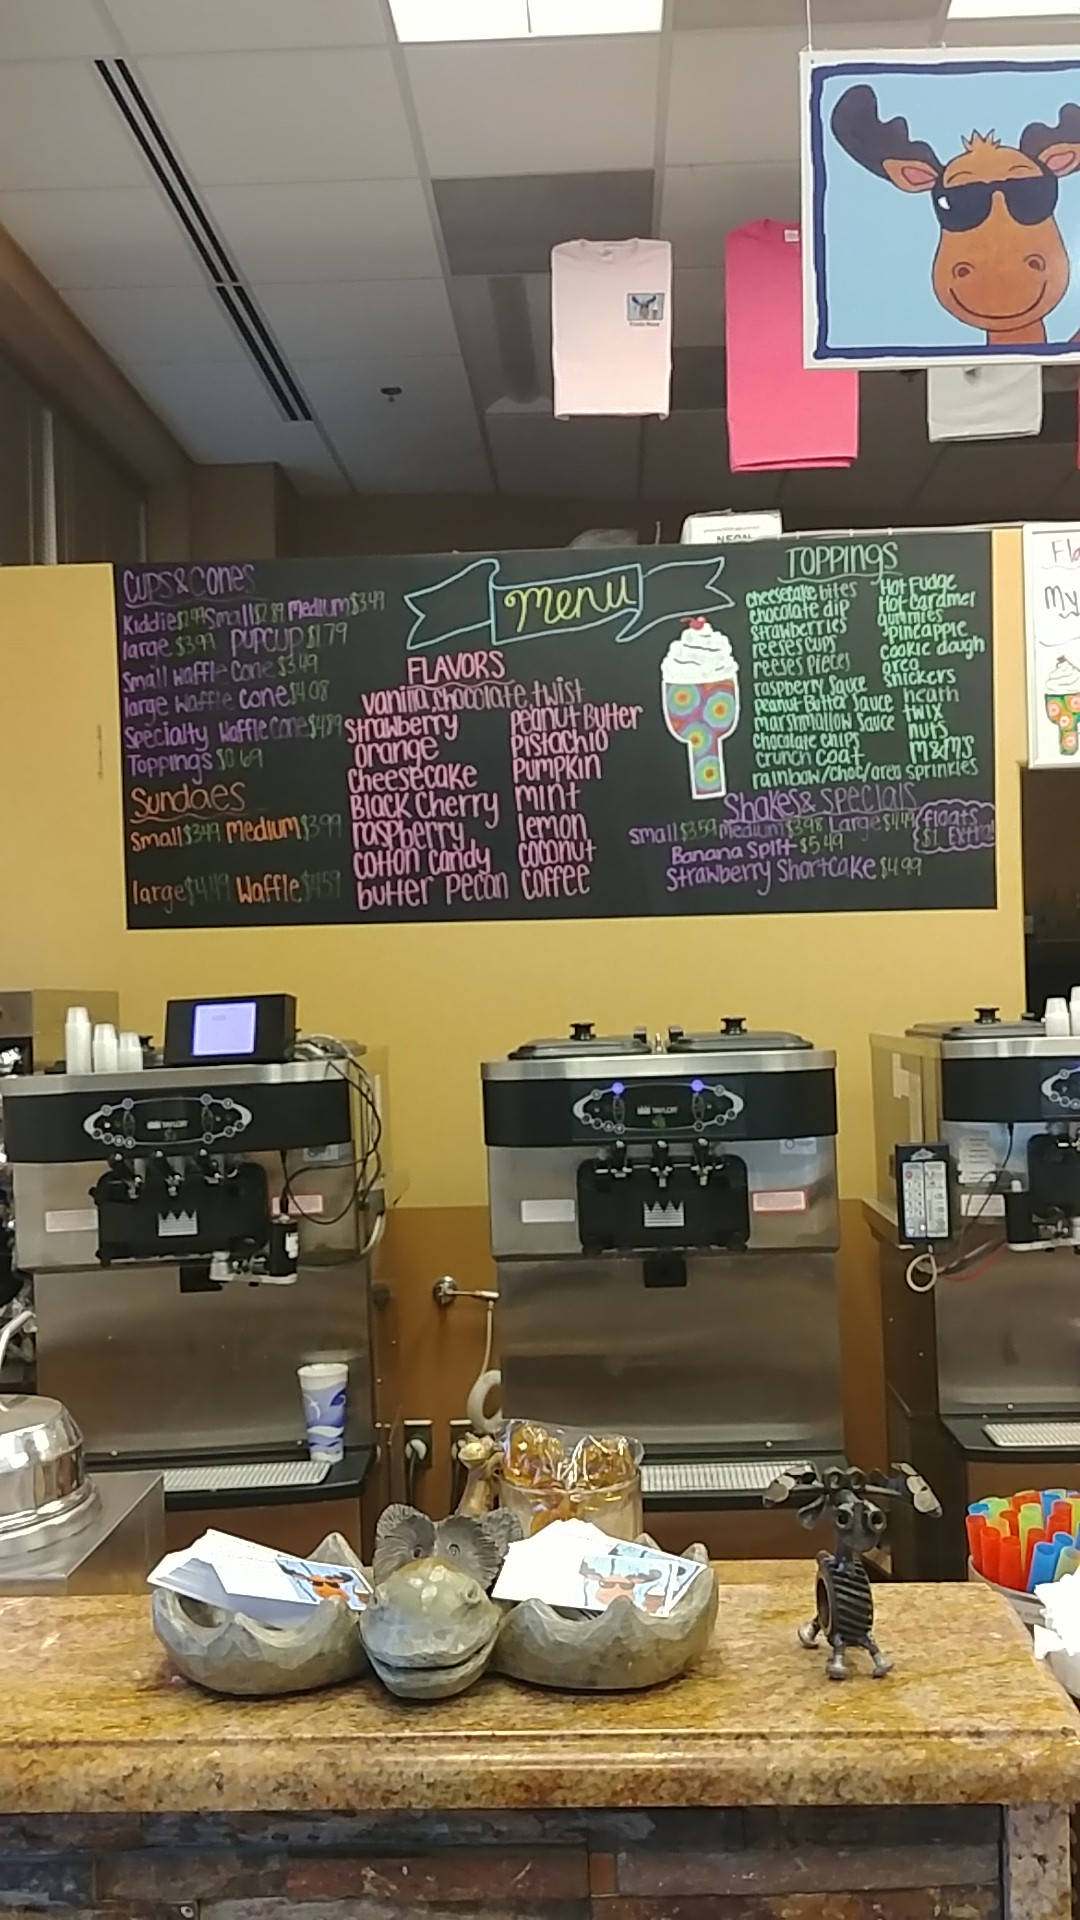 CUPS & CONES
Kiddie $1.99 Small $2.89 Medium $3.49
large $3.99 PUPCUP $1.79
Small Waffle Cone $3.49
large Waffle Cone $4.08
Specialty Waffle Cone $4.89
Toppings $0.69
Sundaes
Small $3.49 Medium $3.99
large $4.49 Waffle $4.59
menu
FLAVORS
vanilla, chocolate, twist
strawberry
orange
Cheesecake
Black Cherry
raspberry
cotton candy
butter pecan
Peanut Butter
Pistachio
Pumpkin
mint
lemon
coconut
coffee
TOPPINGS
cheesecake bites
chocolate dip
strawberries
reeses cups
reeses pieces
raspberry Sauce
Peanut Butter Sauce
marshmallow Sauce
Chocolate chips
crunch coat
rainbow/choc/oreo sprinkles
Hot Fudge
Hot Caramel
gummies
pineapple
cookie dough
oreo
snickers
heath
twix
nuts
M&M'S
Shakes & Specials
Small $3.59 medium $3.98 Large $4.49
floats
$1 Extra!
Banana Split $5.49
Strawberry Shortcake $4.99
NEON
My
TAYLOR
TAYLOR